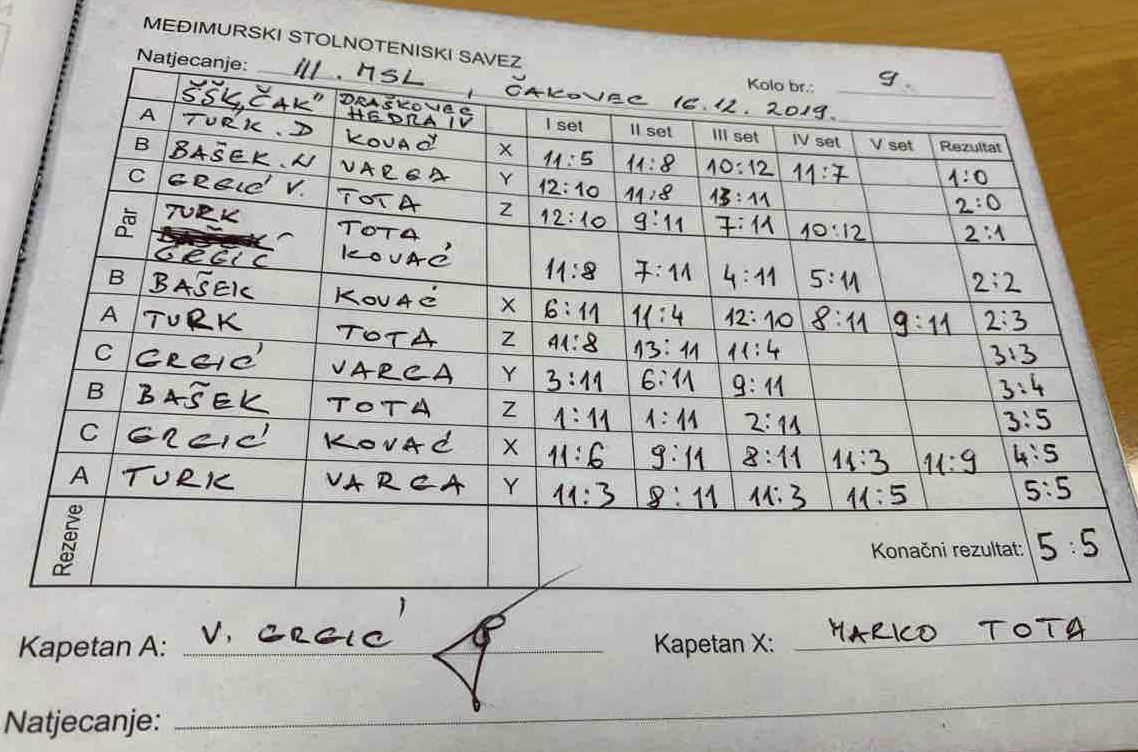 MEĐIMURSKI STOLNOTENISKI SAVEZ
Natjecanje: III. MSL, ČAKOVEC 16.12.2019. Kolo br.: 9.
ŠŠK„ČAK" DRAŠKOVEC HEDRA IV I set II set III set IV set V set Rezultat
A TURK. D KOVAČ X 11:5 11:8 10:12 11:7 1:0
B BAŠEK. N VARGA Y 12:10 11:8 13:11 2:0
C GRGIĆ V. TOTA Z 12:10 9:11 7:11 10:12 2:1
Par TURK GRGIĆ TOTA KOVAČ 11:8 7:11 4:11 5:11 2:2
B BAŠEK KOVAČ X 6:11 11:4 12:10 8:11 9:11 2:3
A TURK TOTA Z 11:8 13:11 11:4 3:3
C GRGIĆ VARGA Y 3:11 6:11 9:11 3:4
B BAŠEK TOTA Z 1:11 1:11 2:11 3:5
C GRGIĆ KOVAČ X 11:6 9:11 8:11 11:3 11:9 4:5
A TURK VARGA Y 11:3 8:11 11:3 11:5 5:5
Rezerve Konačni rezultat: 5:5
Kapetan A: V. GRGIĆ Kapetan X: MARKO TOTA
Natjecanje: